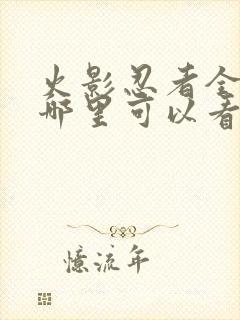 火影忍者全
哪里可以看
憶流年